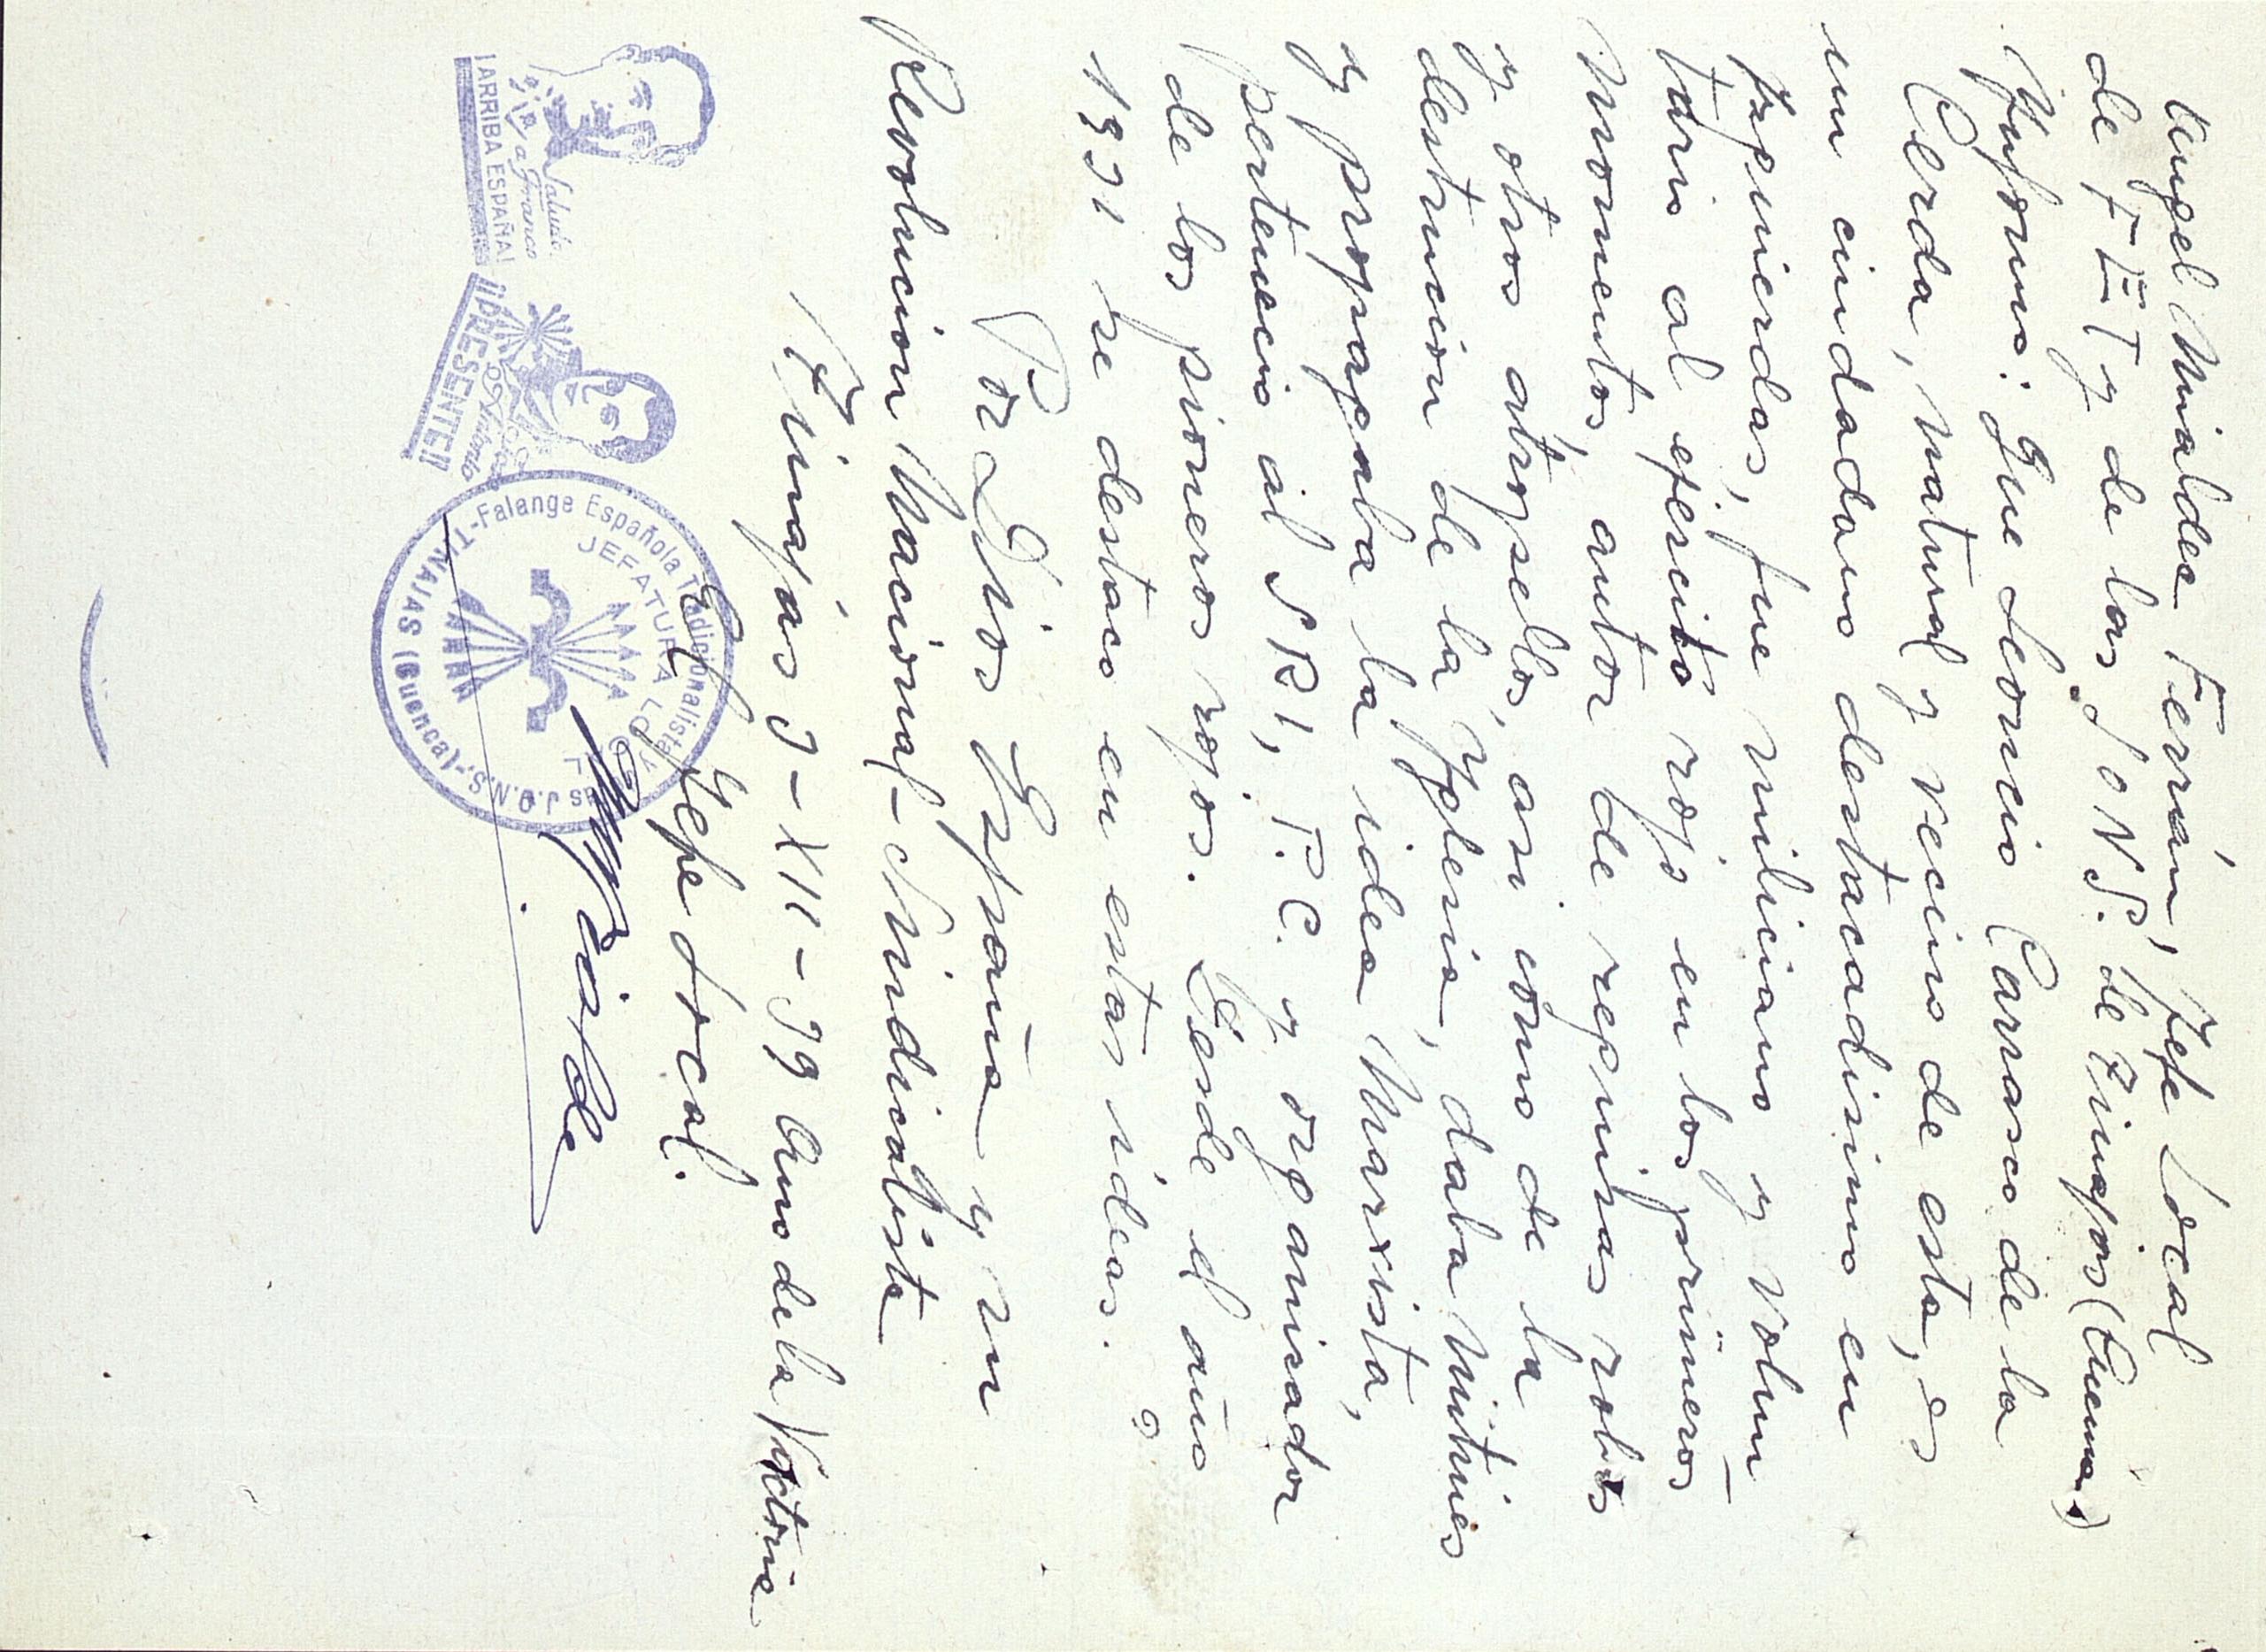 Angel Mialdea Ferrán, Jefe Local
de F E T y de las J O N S. de Tinajas (Cuenca)
Informa: Que Leoncio Carrasco de la
Cerda, natural y vecino de esta, es
un ciudadano destacadisimo en
Izquierdas, fue miliciano y volun
tario al ejercito rojo en los primeros
momentos, autor de requisas robos
y otros atropellos, asi como de la
destrucción de la Yglesia, daba mitines
y propagaba la idea Marxista,
pertenecio al S R I, P. C. y organisador
de los pioneros rojos. Desde el año
1931 se destaco en estas ideas.
Por Dios España y su
Revolucion Nacional-Sindicalista
Tinajas 9-XII-39 Año de la Victoria
El Jefe Local.
A Mialdea
Saludo a Franco
¡ARRIBA ESPAÑA!
José Antonio
¡¡PRESENTE!!
Falange Española Tradicionalista y de las J.O.N.S.-
JEFATURA LOCAL
TINAJAS (Cuenca)